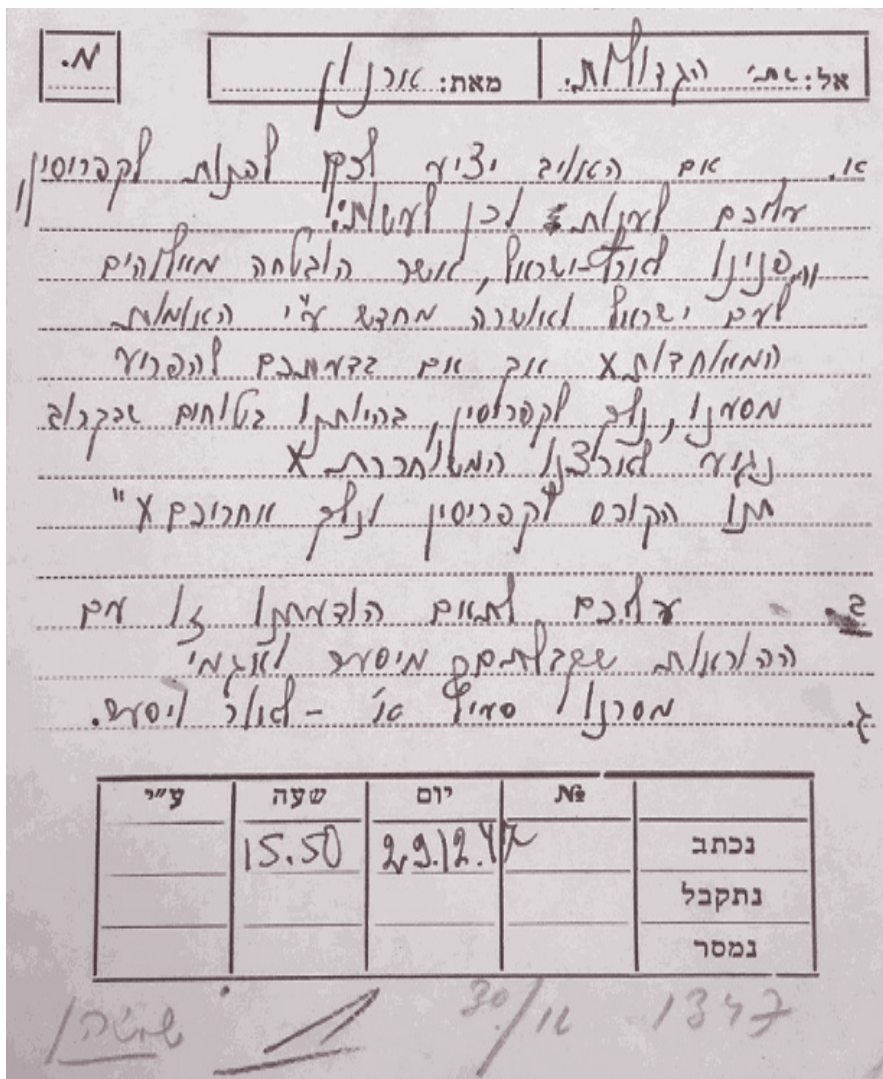 אל: שתי הגדולות. מאת: ארנון מ.
א. אם האויב יציע לכם לפנות לקפריסין,
עליכם לענות לכן לעשות:
"פנינו לארץ-ישראל, אשר הובטחה מאלוהים
לעם ישראל ואושרה מחדש ע"י האומות
המאוחדות x אך אם בדעתכם להפריע
מסענו, נלך לקפריסין, בהיותנו בטוחים שבקרוב
נגיע לארצנו המשוחררת x
תנו הקורס לקפריסין ונלך אחריכם x"
ב. עליכם לתאם הודעתנו זו עם
ההוראות שקבלתם מיסער ואגמי
ג. מסרנו א' - לאור ויסער.
№ יום שעה ע"י
נכתב 29.12.47 15.50
נתקבל
נמסר
1347 30/